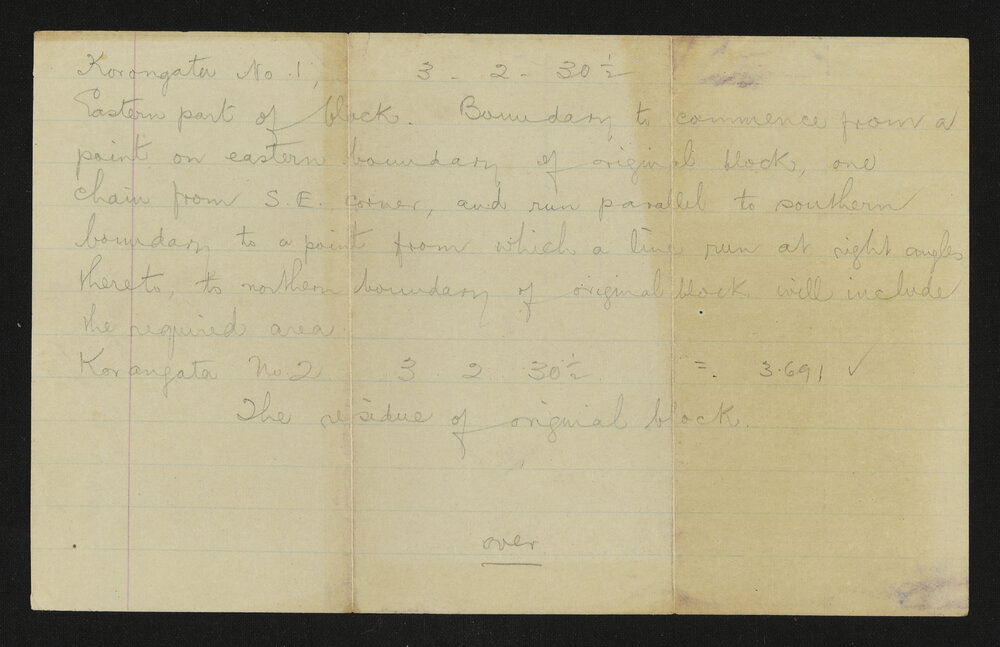 Korongata No. 1, 3 - 2 - 30½
Eastern part of block. Boundary to commence from a
point on eastern boundary of original block, one
chain from S. E. corner, and run parallel to southern
boundary to a point from which a line run at right angles
thereto, to northern boundary of original block will include
the required area.
Korangata No. 2 3 2 30½ = 3.691 ✓
The residue of original block.
over